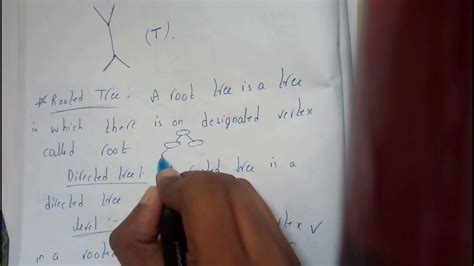 (T).
* Rooted Tree: A root tree is a tree
in which there is on designated vertex
called root
Directed tree: tree is a
directed tree
level :-
in a roote